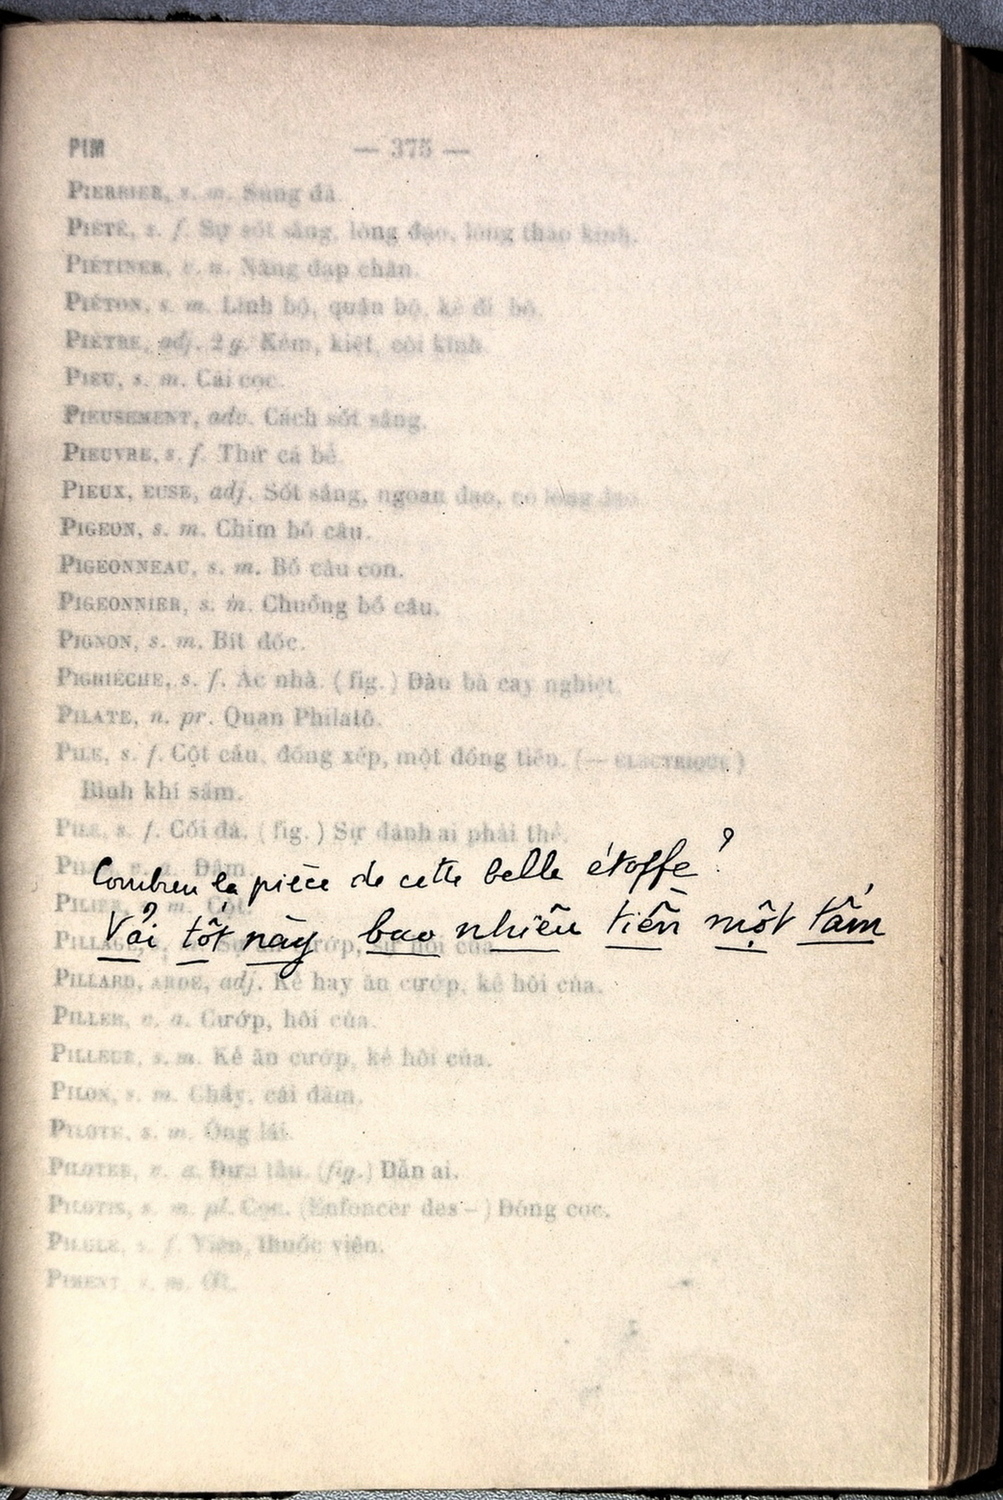 PIM — 375 —
PIERRIER, s. m. Súng đá.
PIÉTÉ, s. f. Sự sốt sắng, lòng đạo, lòng thảo kính.
PIÉTINER, v. n. Năng đạp chân.
PIÉTON, s. m. Lính bộ, quân bộ, kẻ đi bộ.
PIÈTRE, adj. 2 g. Kém, kiết, còi kĩnh.
PIEU, s. m. Cái cọc.
PIEUSEMENT, adv. Cách sốt sắng.
PIEUVRE, s. f. Thứ cá bể.
PIEUX, EUSE, adj. Sốt sắng, ngoan đạo, có lòng đạo.
PIGEON, s. m. Chim bồ câu.
PIGEONNEAU, s. m. Bồ câu con.
PIGEONNIER, s. m. Chuồng bồ câu.
PIGNON, s. m. Bít đốc.
PIGRIÈCHE, s. f. Ác nhà. (fig.) Đàn bà cay nghiệt.
PILATE, n. pr. Quan Philatô.
PILE, s. f. Cột cầu, đống xếp, một đồng tiền. (— ÉLECTRIQUE)
Bình khí sấm.
PILE, s. f. Cối đá. (fig.) Sự đánh ai phải thể.
Đâm.
Combien la pièce de cette belle étoffe ?
PILIER, s. m. Cột.
Vải tốt này bao nhiêu tiền một tấm
PILLAGE, cướp, hôi của.
PILLARD, ARDE, adj. Kẻ hay ăn cướp, kẻ hôi của.
PILLER, v. a. Cướp, hôi của.
PILLEUR, s. m. Kẻ ăn cướp, kẻ hôi của.
PILON, s. m. Chầy, cái đâm.
PILOTE, s. m. Ông lái.
PILOTER, v. a. Đưa tầu. (fig.) Dẫn ai.
PILOTIS, s. m. pl. Cọc. (Enfoncer des –) Đóng cọc.
PILULE, s. f. Viên, thuốc viên.
PIMENT, s. m. Ớt.